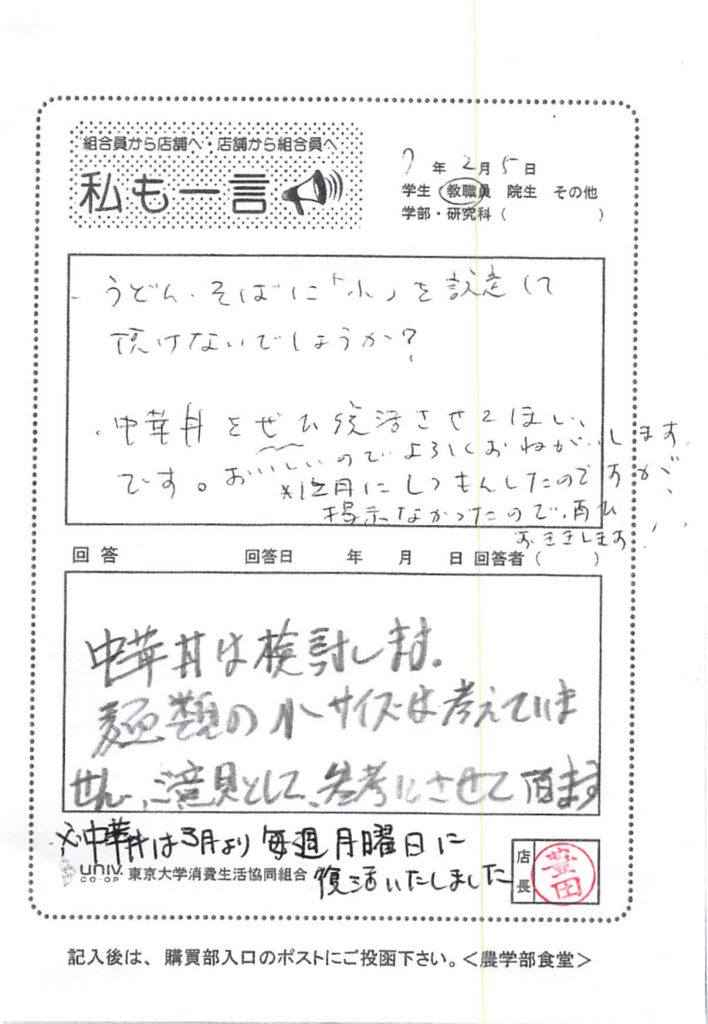 組合員から店舗へ・店舗から組合員へ
私も一言
7年2月5日
学生 教職員 院生 その他
学部・研究科（ ）
・うどん・そばに「小」を設定して
頂けないでしょうか?
・中華丼をぜひ復活させてほしい
です。おいしいのでよろしくおねがいします
※1月にしつもんしたのですが、
掲示なかったので、再度
おききします!
回答 回答日 年 月 日 回答者（ ）
中華丼は検討します。
麺類の小サイズは考えていま
せん、ご意見として、参考にさせて頂ます
※中華丼は3月より毎週月曜日に
復活いたしました
univ. CO-OP 東京大学消費生活協同組合
店長 豊田
記入後は、購買部入口のポストにご投函下さい。＜農学部食堂＞